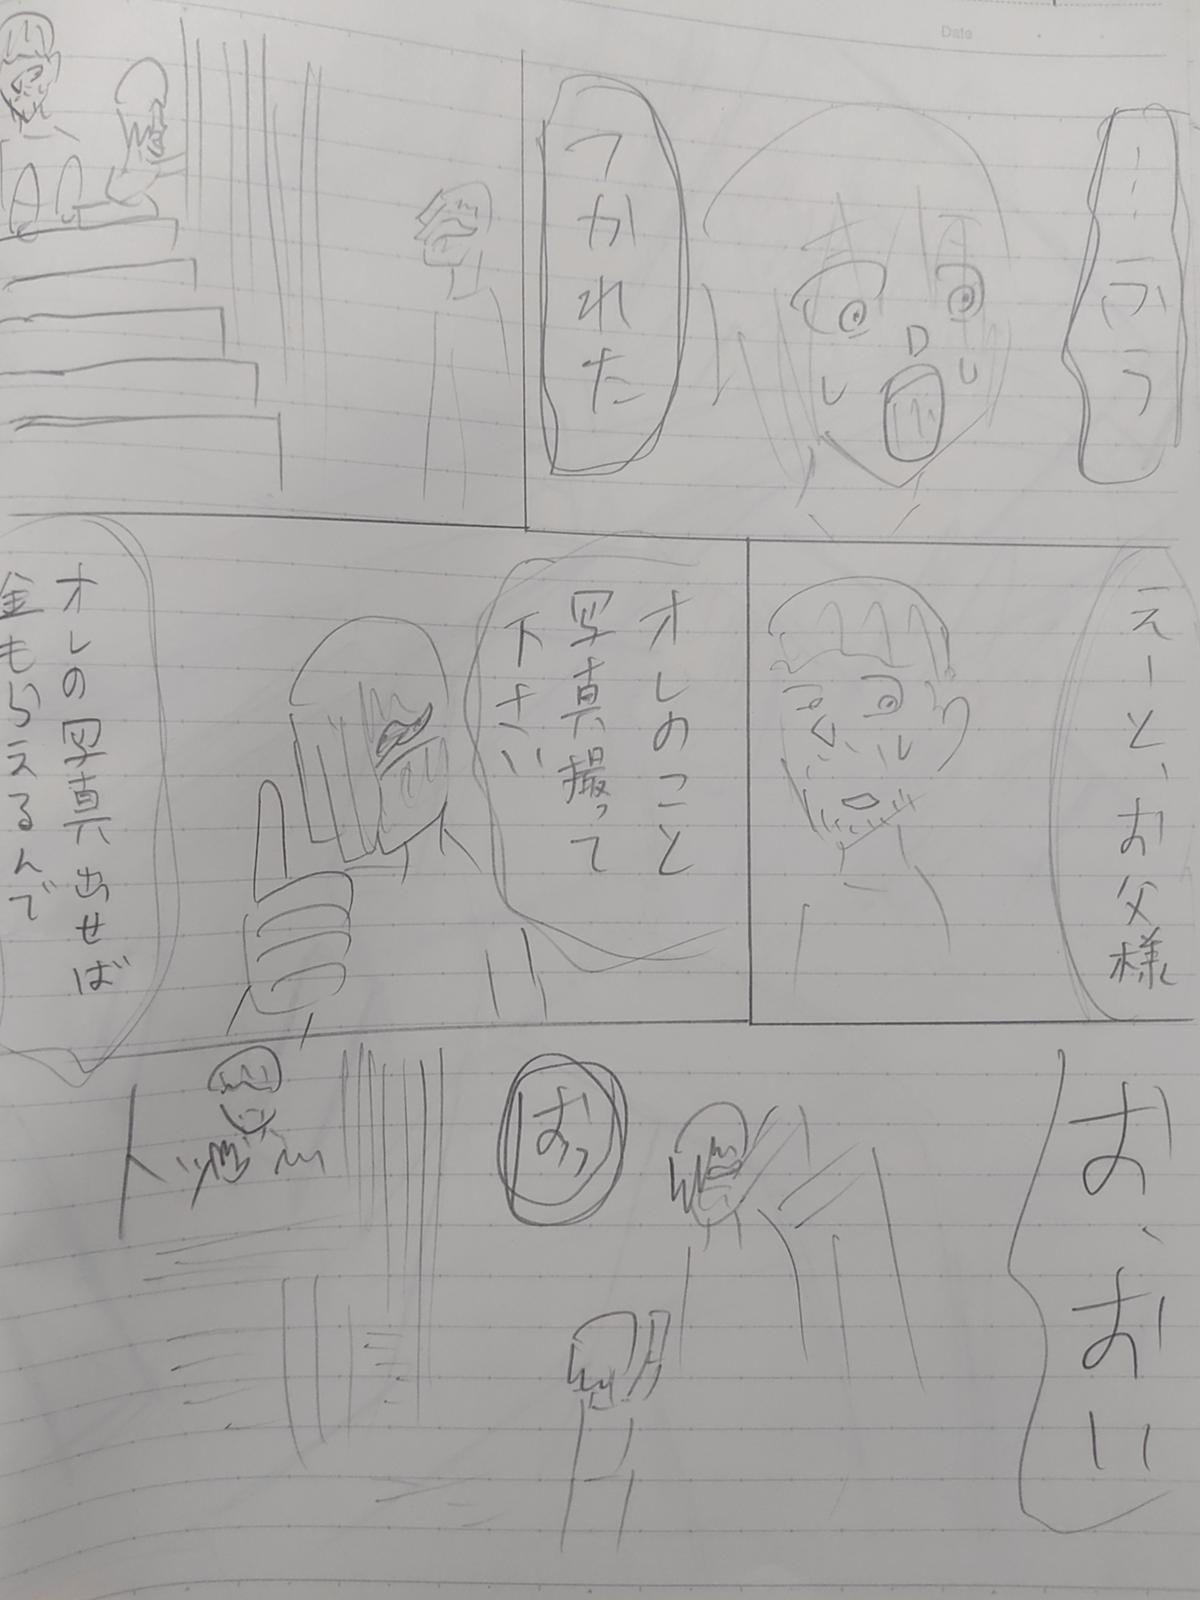 Date
…ふぅ
つかれた
えーと、お父様
オレのこと
写真撮って
下さい
オレの写真出せば
金もらえるんで
お、おい
おっ